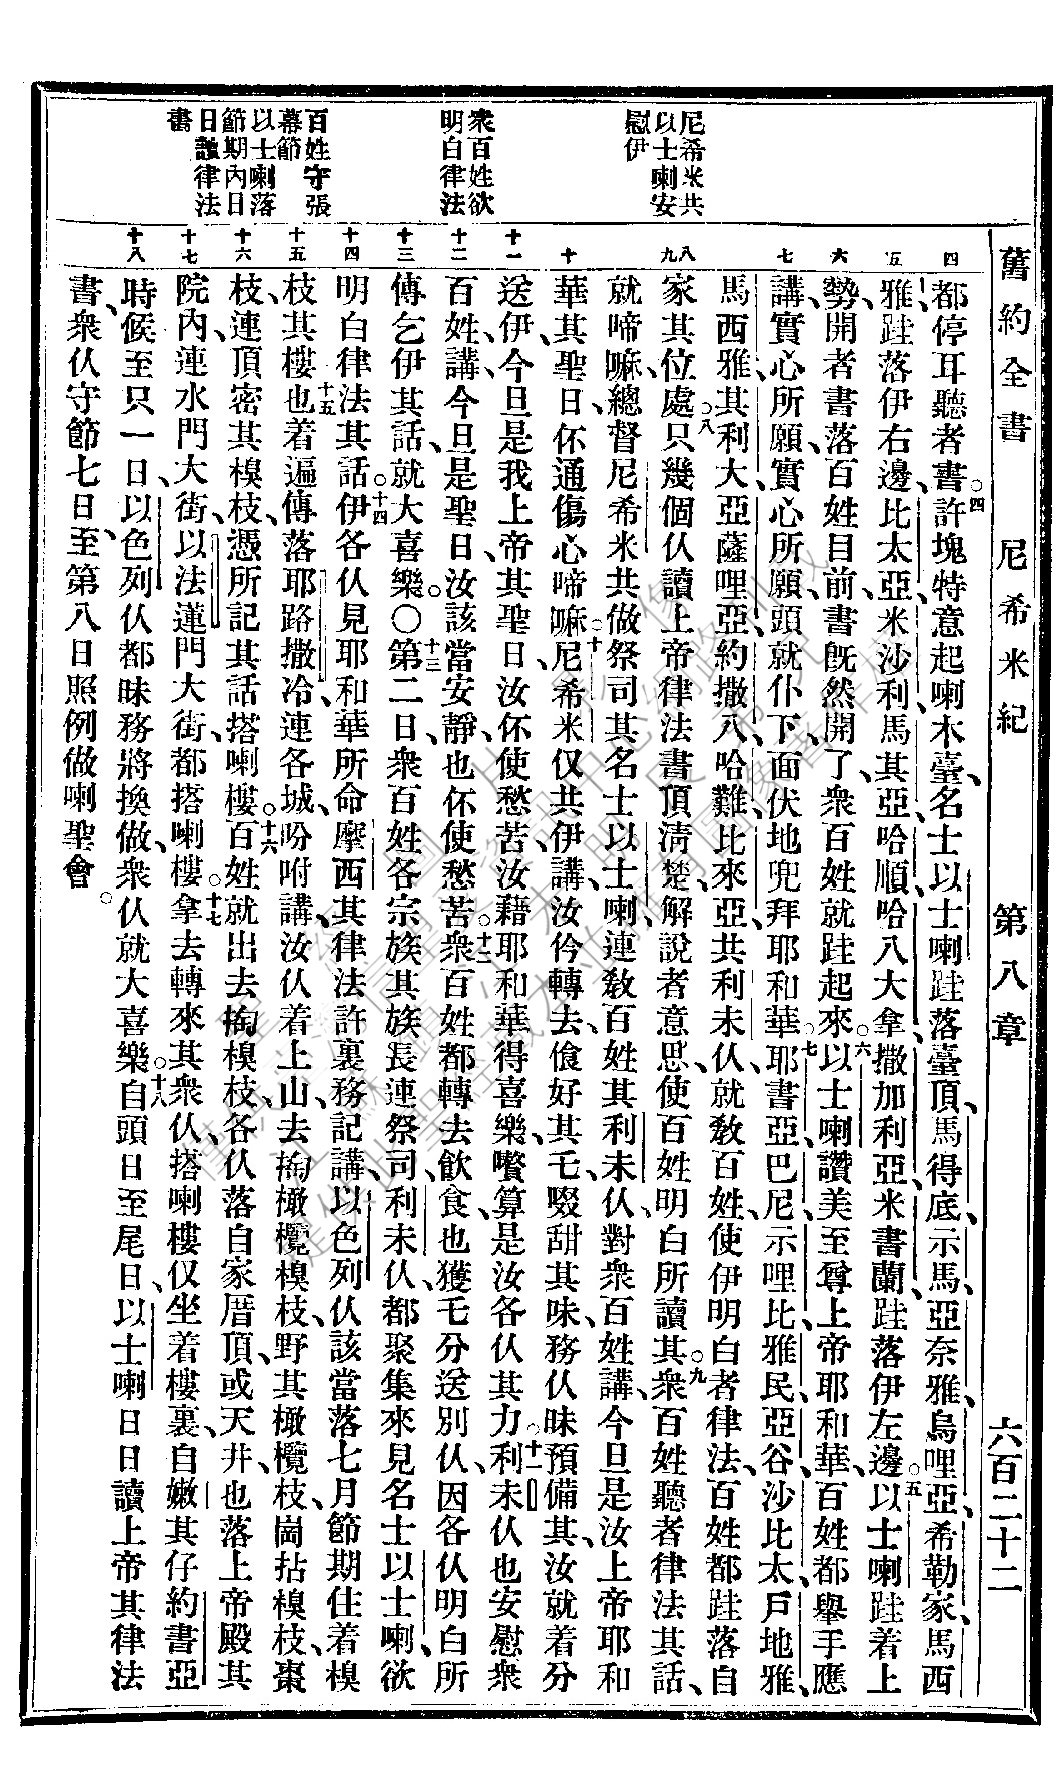 舊約全書 尼希米紀 第八章 六百二十二
尼希米共
以士喇安
慰伊
衆百姓欲
明白律法
百姓守張
幕節
以士喇落
節期內日
日讀律法
書
四 五 六 七 八 九 十 十一 十二 十三 十四 十五 十六 十七 十八
都停耳聽者書。四許塊特意起喇木臺、名士以士喇跬落臺頂、馬得底、示馬、亞奈雅、烏哩亞、希勒家、馬西
雅、跬落伊右邊、比太亞、米沙利、馬其亞、哈順、哈八大拿、撒加利亞、米書蘭、跬落伊左邊。五以士喇跬着上
勢、開者書落百姓目前、書旣然開了、衆百姓就跬起來。六以士喇讚美至尊上帝耶和華、百姓都舉手應
講、實心所願、實心所願、頭就仆下、面伏地兜拜耶和華。七耶書亞、巴尼、示哩比、雅民、亞谷、沙比太、戶地雅、
馬西雅、其利大、亞薩哩亞、約撒八、哈難、比來亞、共利未仫、就教百姓、使伊明白者律法、百姓都跬落自
家其位處。八只幾個仫、讀上帝律法書頂淸楚、解說者意思、使百姓明白所讀其。九衆百姓聽者律法其話、
就啼嘛、總督尼希米、共做祭司其名士以士喇、連教百姓其利未仫、對衆百姓講、今旦是汝上帝耶和
華其聖日、伓通傷心啼嘛。十尼希米仅共伊講、汝伶轉去、食好其乇、啜甜其味、務仫昧預備其、汝就着分
送伊、今旦是我上帝其聖日、汝伓使愁苦、汝藉耶和華得喜樂、嚽算是汝各仫其力。十一利未仫也安慰衆
百姓、講、今旦是聖日、汝該當安靜、也伓使愁苦。十二衆百姓都轉去飲食、也獲乇分送別仫、因各仫明白所
傳乞伊其話、就大喜樂。〇十三第二日、衆百姓各宗族其族長、連祭司利未仫、都聚集來見名士以士喇、欲
明白律法其話。十四伊各仫見耶和華所命摩西其律法許裏務記講、以色列仫該當落七月節期住着模
枝其樓也。十五着遍傳落耶路撒冷連各城、吩咐講、汝仫着上山去搊橄欖模枝、野其橄欖枝、崗拈模枝、棗
枝、連頂密其模枝、憑所記其話、搭喇樓。十六百姓就出去搊模枝、各仫落自家厝頂、或天井、也落上帝殿其
院內、連水門大街、以法蓮門大街、都搭喇樓。十七拿去轉來其衆仫、搭喇樓、仅坐着樓裏、自嫩其仔約書亞
時候至只一日、以色列仫都昧務將換做、衆仫就大喜樂。十八自頭日至尾日、以士喇日日讀上帝其律法
書、衆仫守節七日、至第八日照例做喇聖會。